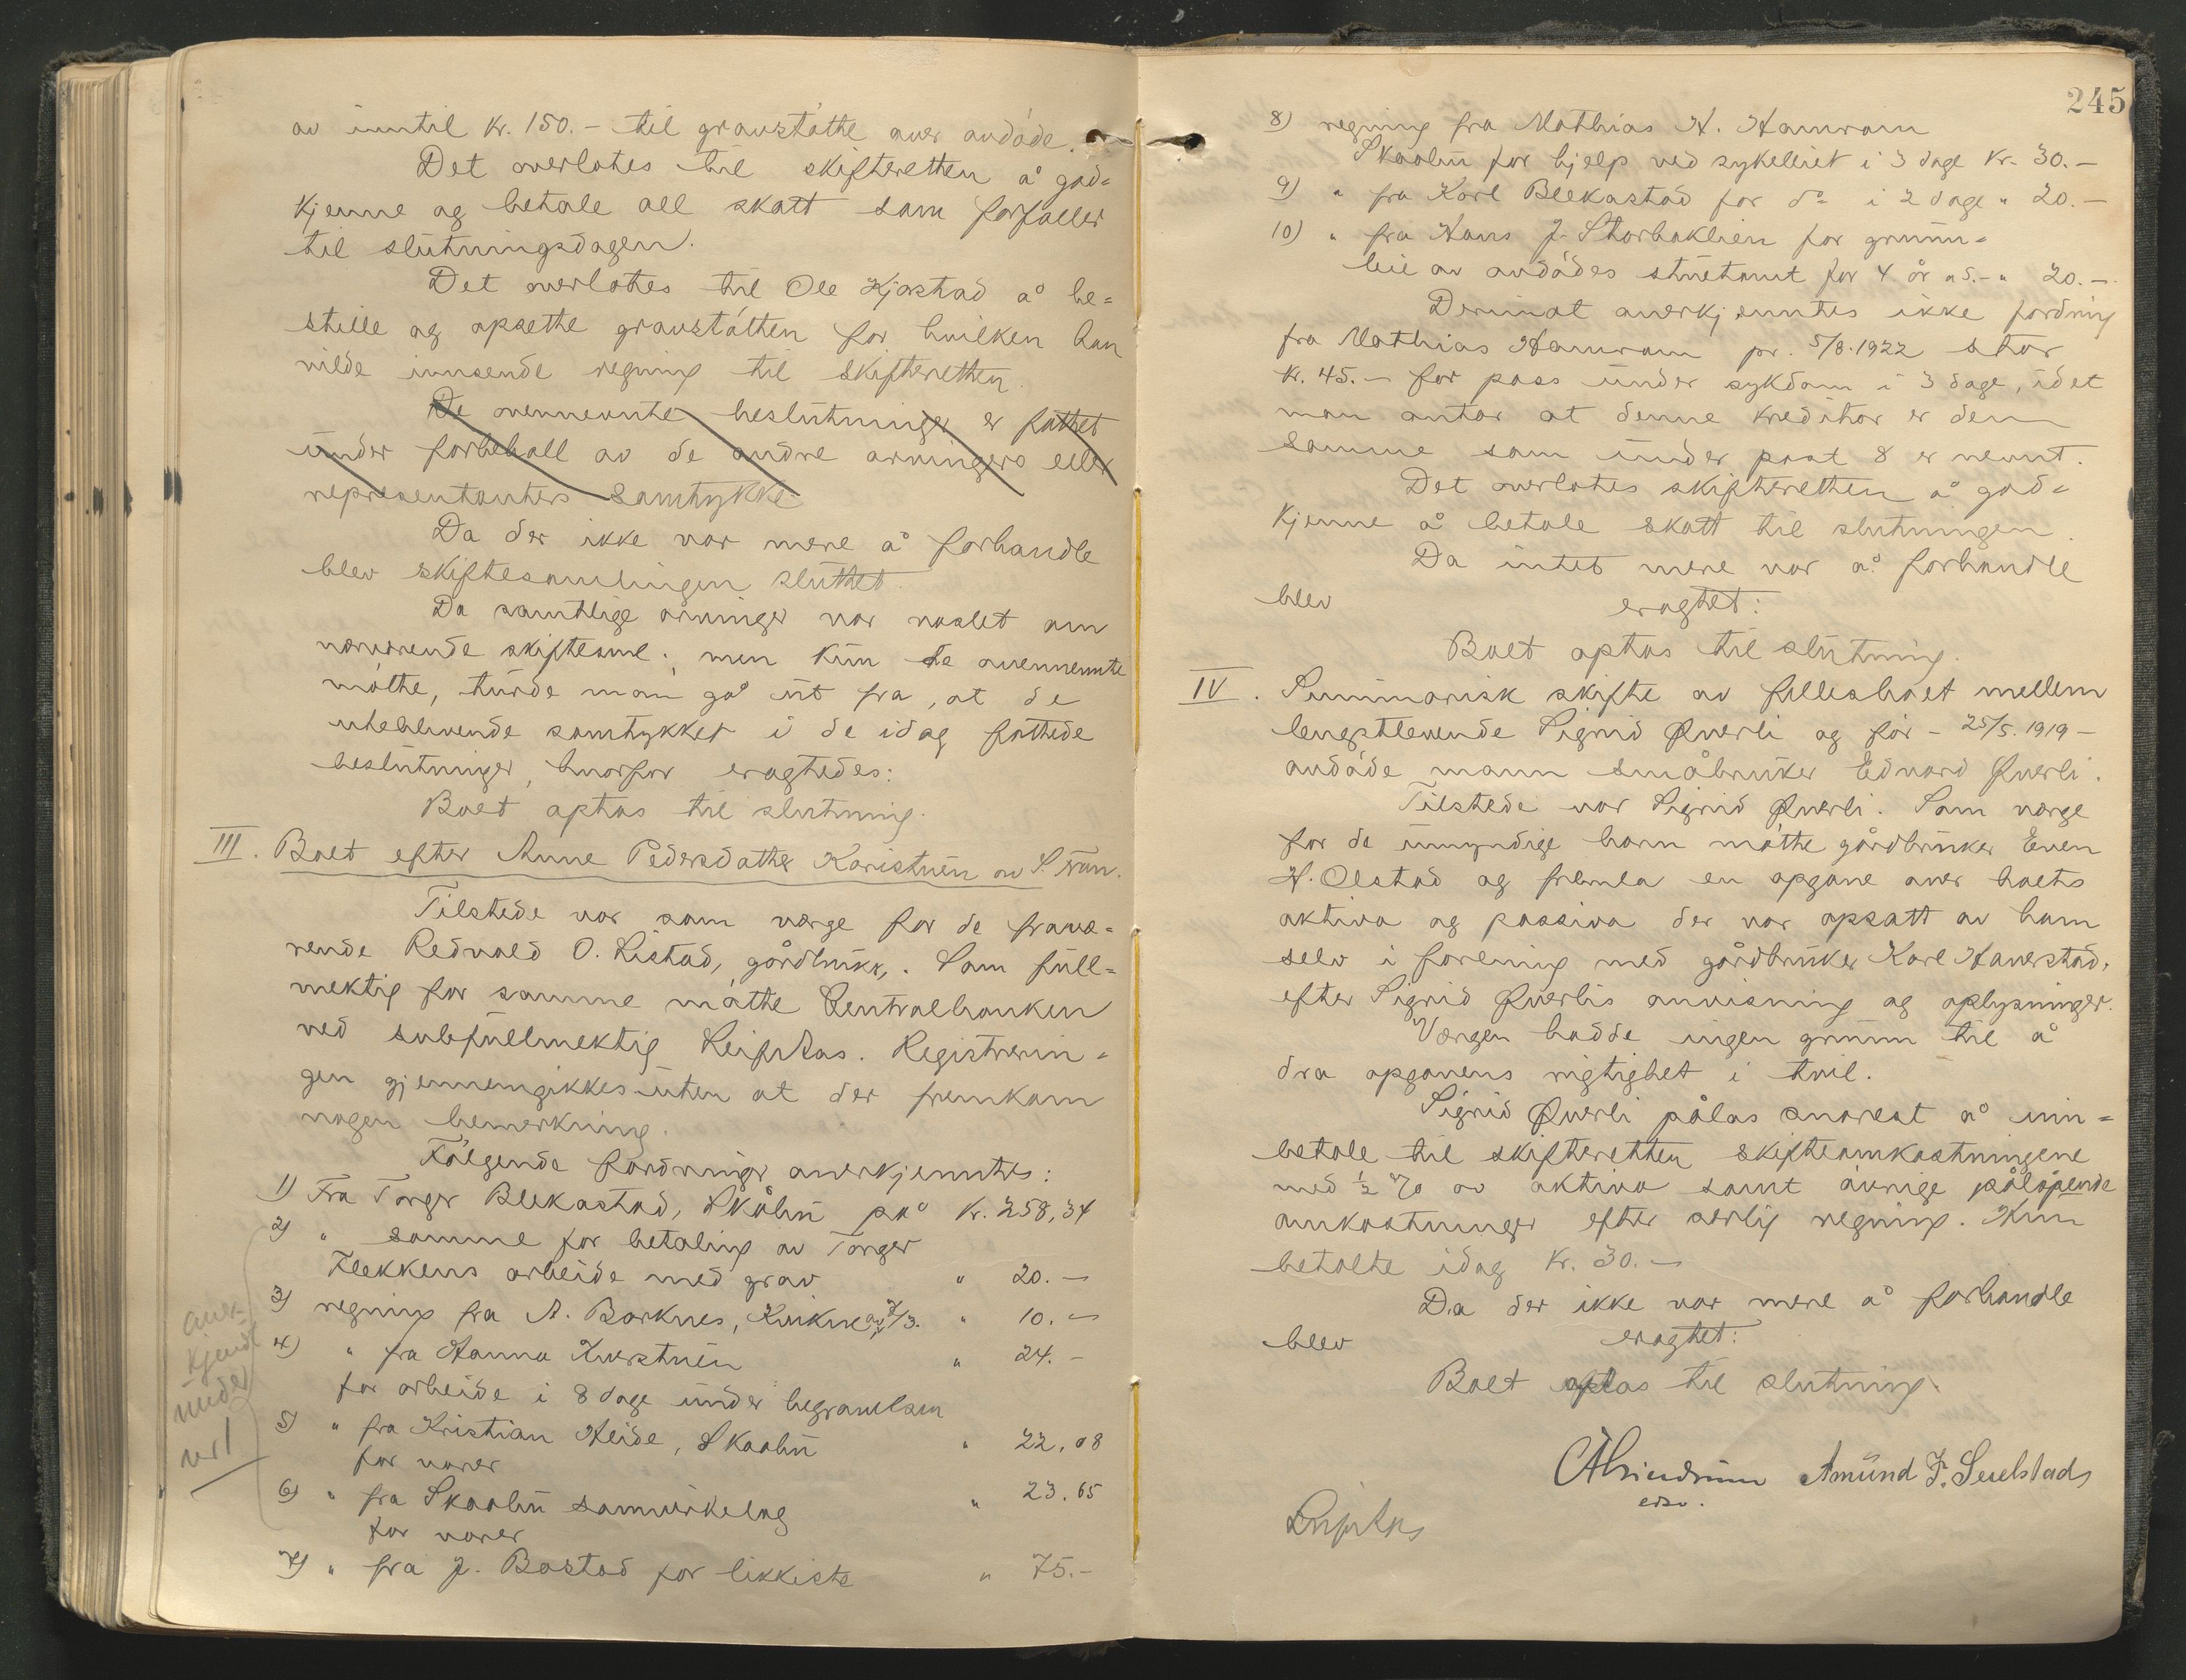 av inntil kr. 150.- til gravstøtte over avdøde.
Det overlotes til skifteretten å god=
kjenne og betale all skatt som forfaller
til slutningsdagen.
Det overlotes til Ole Kjøstad å be=
stille og opsette gravstøtten for hvilken han
vilde innsende regning til skifteretten.
De ovennevnte beslutninger er fattet
under forbehold av de andre arvingers eller
representanters samtykke
Da der ikke var mere å forhandle
blev skiftesamlingen sluttet.
Da samtlige arvinger var varslet om
nærværende skiftesml. men kun de ovennevnte
møtte, turde man gå ut fra, at de
uteblivende samtykket i de idag fattede
beslutninger, hvorfor eragtedes:
Boet optas til slutning.
III. Boet efter Anne Pedersdatter Karistuen av S. Fron.
Tilstede var som verge for de fravæ=
rende Redvald O. Listad, gårdbruker. Som full=
mektig for samme møtte Centralbanken
ved subfullmektig Leif Aas. Registrerin=
gen gjennemgikkes uten at der fremkom
nogen bemerkning.
Følgende fordringer anerkjenntes:
1) Fra Torger Blekastad, Skåbu på kr. 258,34
2) " samme for betaling av Torger
Flekkens arbeide med grav " 20.-
3) regning fra A. Borknes, Kvikne av 7/3. " 10.-
4) " fra Hanna Kverstuen " 24.-
for arbeide i 8 dage under begravelsen
5) " fra Kristian Heide, Skaabu " 22,08
for varer
6) " fra Skaabu samvirkelag " 23.65
for varer
7) " fra J. Bostad for likkiste " 75.-
aner-
kjendt
under
nr 1
245
8) regning fra Mathias H. Hamram
Skaabu for hjelp ved sykeleiet i 3 dage kr. 30.-
9) " fra Karl Blekastad for do i 2 dage " 20.-
10) " fra Hans J. Storbaklien for grunn=
leie av avdødes stuetomt for 4 år a 5.- " 20.-
Derimot anerkjenntes ikke fordring
fra Mathias Hamram pr. 5/8.1922 stor
kr. 45.- for pass under sykdom i 3 dage, idet
man antar at denne kreditor er den
samme som under post 8 er nevnt.
Det overlotes skifteretten å god=
kjenne å betale skatt til slutningen.
Da intet mere var å forhandle
blev eragtet:
Boet optas til slutning.
IV. Summarisk skifte av fellesboet mellem
lengstlevende Sigrid Øverli og før - 25/5.1919 -
avdøde mann småbruker Edvard Øverli.
Tilstede var Sigrid Øverli. Som verge
for de umyndige barn møtte gårdbruker Even
H. Olstad og fremla en opgave over boets
aktiva og passiva der var opsatt av ham
selv i forening med gårdbruker Karl Haverstad,
efter Sigrid Øverlis anvisning og oplysninger.
Vergen hadde ingen grunn til å
dra opgavens rigtighet i tvil.
Sigrid Øverli pålas snarest å inn=
betale til skifteretten skifteomkostningene
med ½ % av aktiva samt øvrige påløpende
omkostninger efter særlig regning. Hun
betalte idag kr. 30.-
Da der ikke var mere å forhandle
blev eragtet:
Boet optas til slutning.
Amund F. Selstad
edsv.
Leif Aas